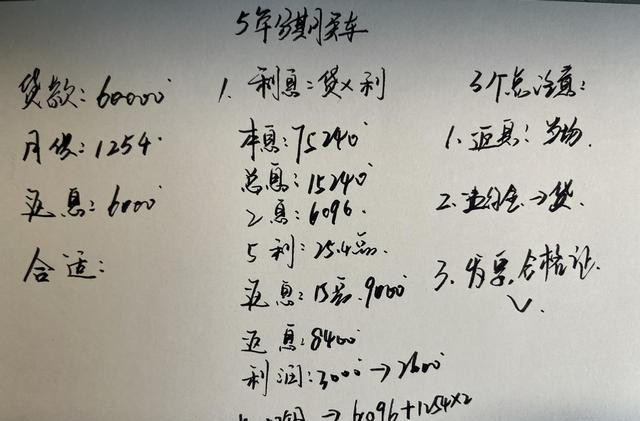 5年分期买车
贷款:60000
月供:1254
返息:6000
合适:
1. 利息=贷×利
本息:75240
总息:15240
2息:6096.
5利:25.4%
返息:15%.9000
返息:8400
利润:3000→2600
→6096+1254×2
3个点注意:
1. 返息:当场.
2. 违约金→贷.
3. 发票,合格证.